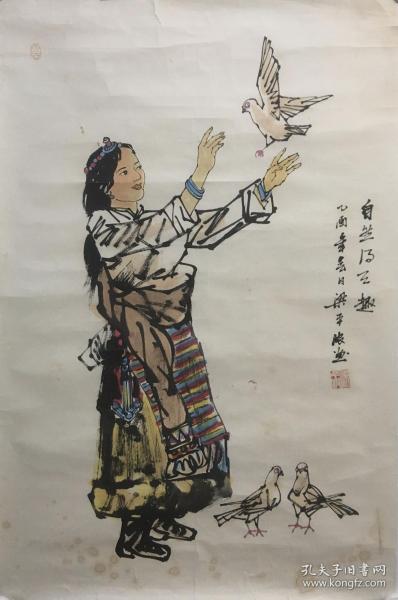 自然得天趣
乙酉年春日梁平波画
孔夫子旧书网
www.kongfz.com